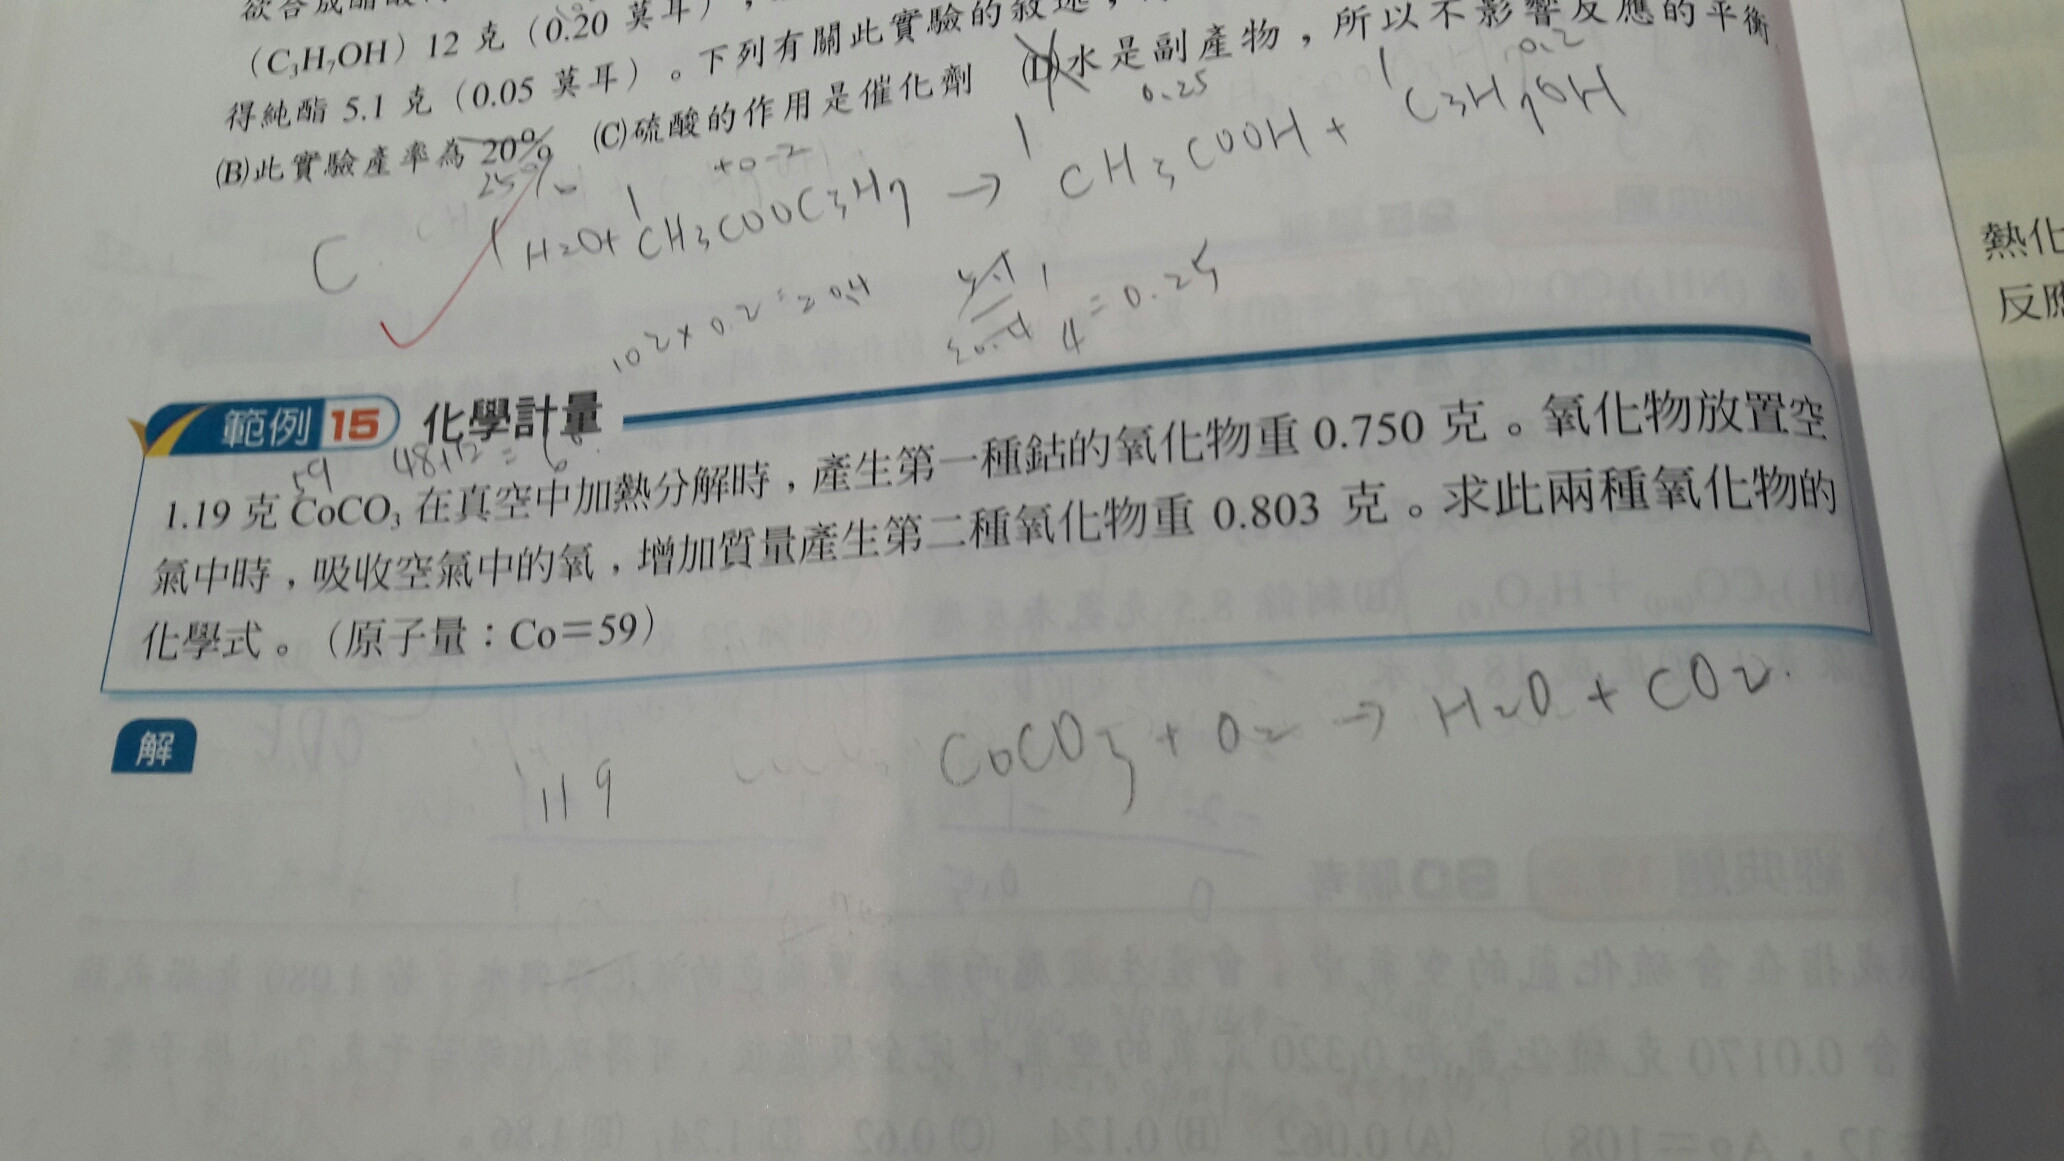 欲合成醋酸
（C₃H₇OH）12 克（0.20 莫耳），
得純酯 5.1 克（0.05 莫耳）。下列有關此實驗的敘述，
(B)此實驗產率為 20% (C)硫酸的作用是催化劑 (D)水是副產物，所以不影響反應的平衡
25%
+0.2
0.25
0.2
C
1 H₂O+ 1 CH₃COOC₃H₇ → 1 CH₃COOH + 1 C₃H₇OH
102×0.2=20.4
5.1 1
20.4 4 = 0.25
範例 15 化學計量
59 48+12=60
1.19 克 CoCO₃ 在真空中加熱分解時，產生第一種鈷的氧化物重 0.750 克。氧化物放置空
氣中時，吸收空氣中的氧，增加質量產生第二種氧化物重 0.803 克。求此兩種氧化物的
化學式。（原子量：Co＝59）
解
119
CoCO₃ + O₂ → H₂O + CO₂.
熱化
反應